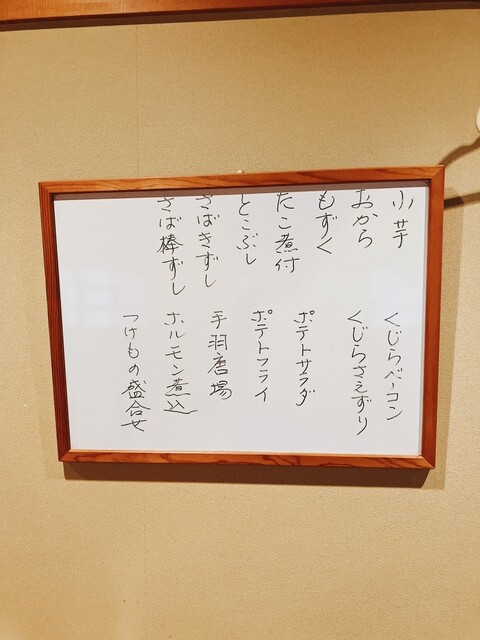 小芋
おから
もずく
たこ煮付
とこぶし
さばきずし
さば棒ずし
くじらベーコン
くじらさえずり
ポテトサラダ
ポテトフライ
手羽唐場
ホルモン煮込
つけもの盛合せ